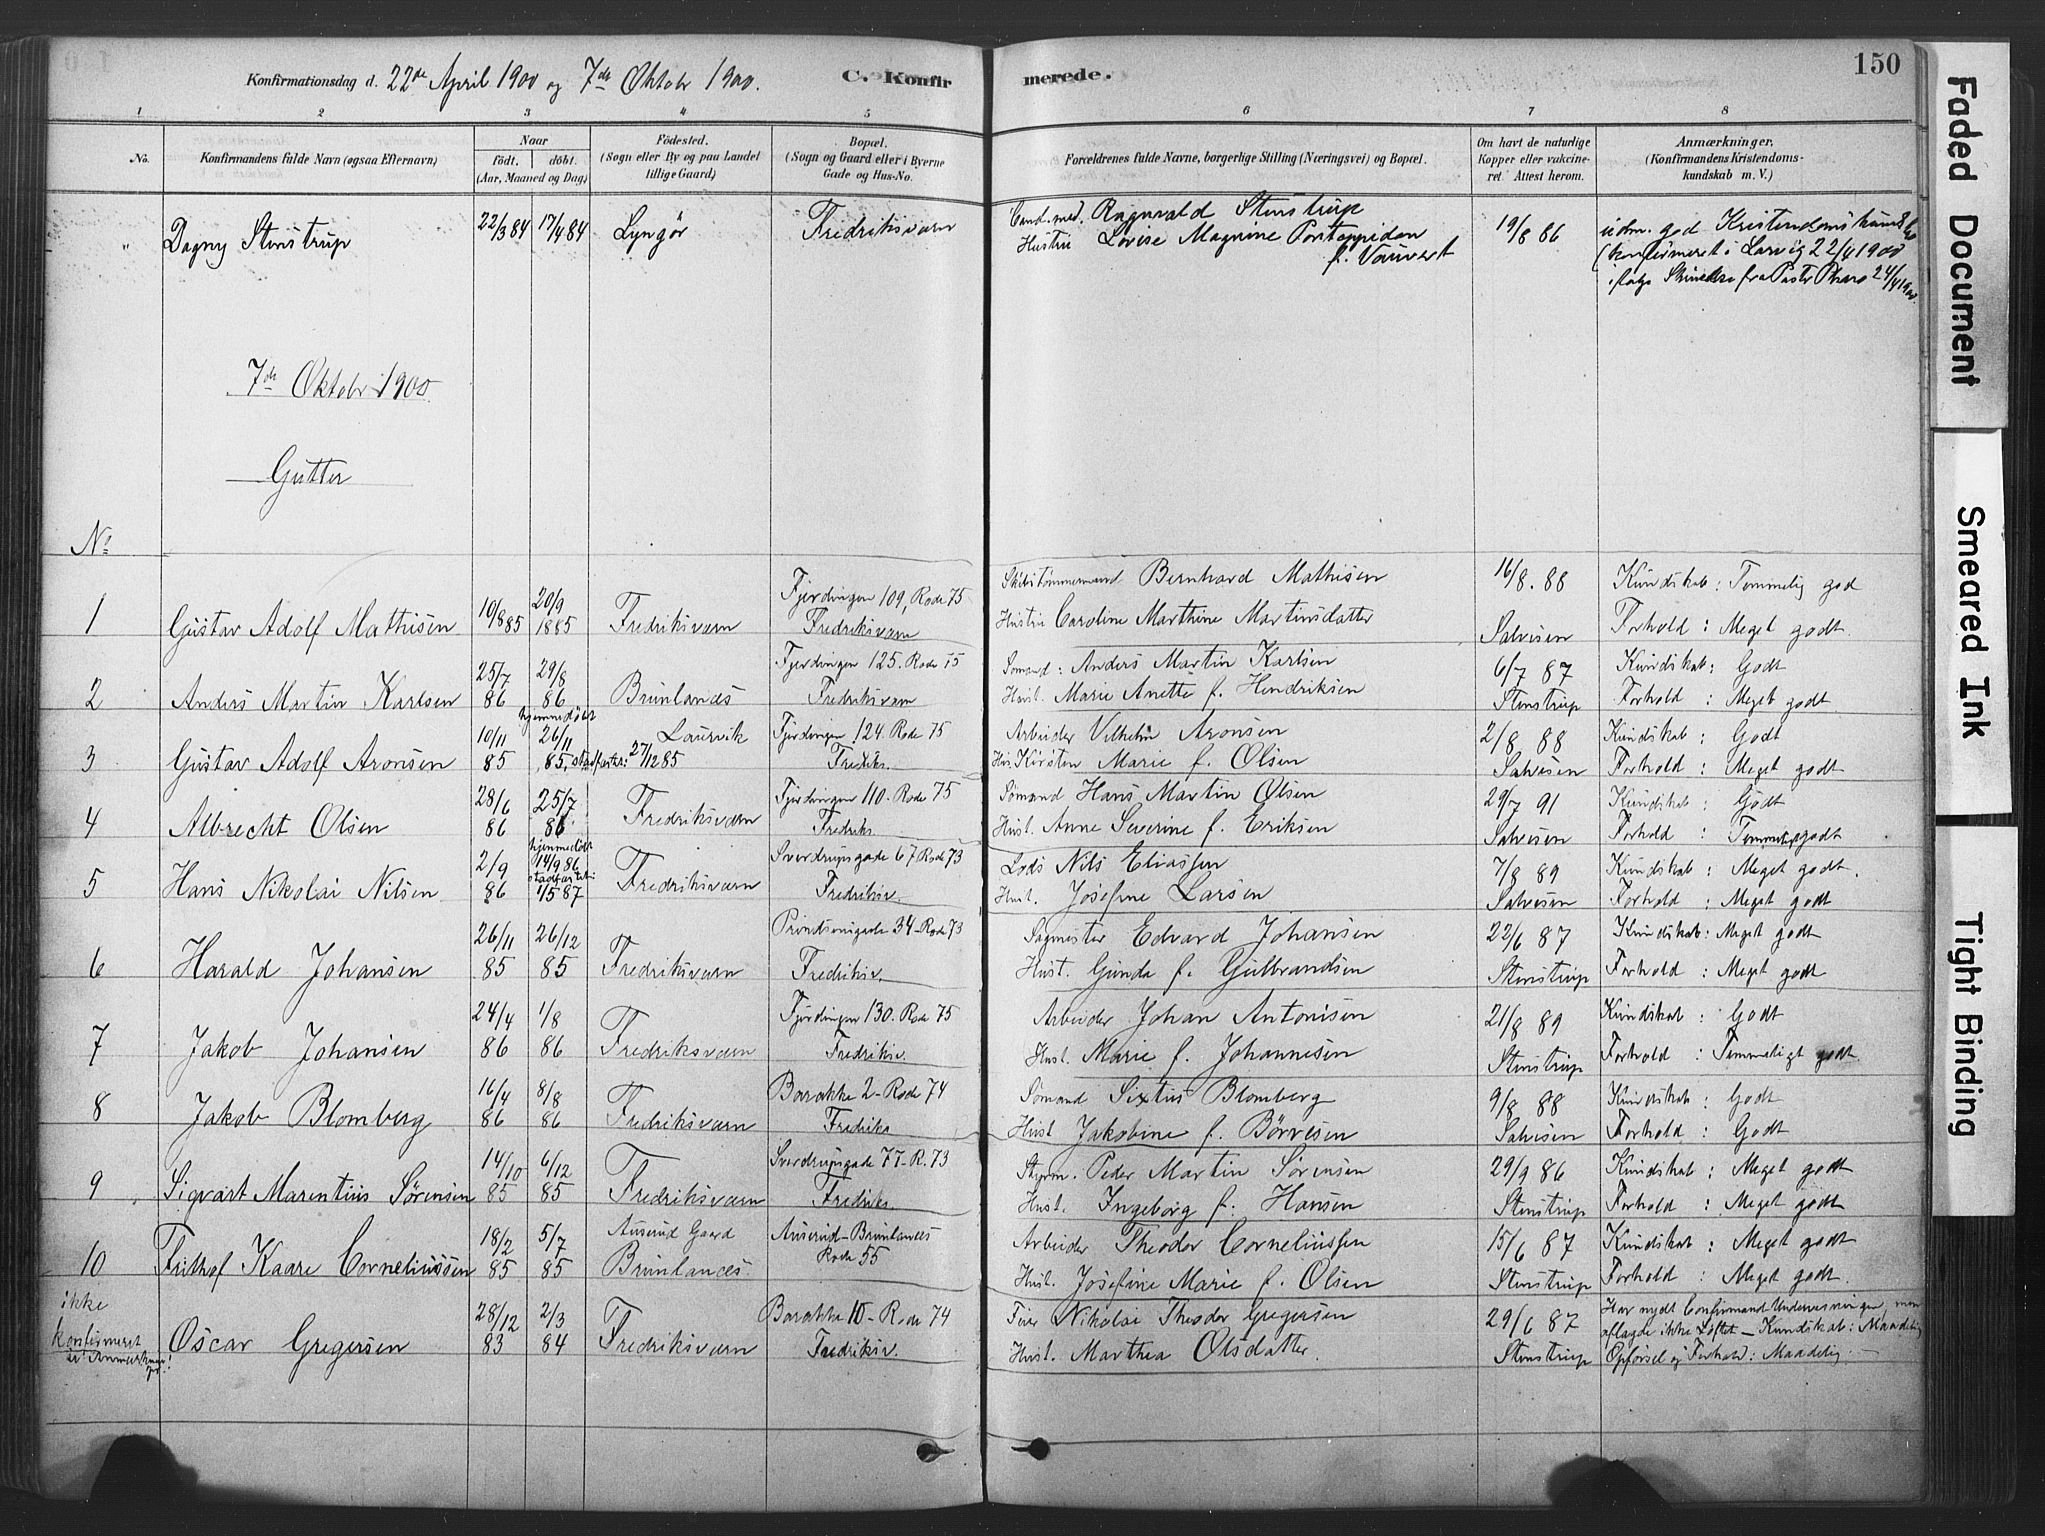 150
Konfirmationsdag d. 22de April 1900 og 7de Oktobr 1900. C. Konfirmerede.
1 2 3 4 5 6 7 8
No.
Konfirmandens fulde Navn (ogsaa Efternavn)
Naar
født. døbt.
(Aar, Maaned og Dag)
Fødested.
(Sogn eller By og paa Landet
tillige Gaard)
Bopæl.
(Sogn og Gaard eller i Byerne
Gade og Hus-No.
Forældrenes fulde Navne, borgerlige Stilling (Næringsvei) og Bopæl.
Om havt de naturlige
Kopper eller vakcine-
ret. Attest herom.
Anmærkninger.
(Konfirmandens Kristendoms-
kundskab m. V.)
" Dagny Stenstrup 22/3 84 17/4 84 Lyngör Fredriksværn
Cand. med. Ragnvald Stenstrup
Hustru Lovise Magnine Pontoppidan
f. Vauvert
19/8 86
udm. god Kristendomskundsk
(konfirmeret i Larvig 22/4 1900
ifølge Skrivelse fra Pastor 24/4 1900.
7de Oktobr 1900.
Gutter
No
1 Gustav Adolf Mathisen 10/8 85 20/9 1885 Fredriksværn Fjerdingen 109, Rode 75 Fredriksværn
Skibstømmermand Bernhard Mathisen
Hustru Caroline Marthine Martinsdatter
16/8. 88 Salvesen
Kundskab: Temmelig god
Forhold: Meget godt.
2 Anders Martin Karlsen 25/7 86 29/8 86 Brunlanes Fjerdingen 125. Rode 75 Fredriksværn
Sømand: Anders Martin Karlsen
Hust. Marie Anette f. Hendriksen
6/7 87 Stenstrup
Kundskab: Godt
Forhold: Meget godt.
3 Gustav Adolf Aronsen 10/11 85 hjemmedøbt 26/11 85, stadfæstet 27/12 85 Laurvik Fjerdingen 124. Rode 75 Fredriks.
Arbeider Vilhelm Aronsen
Hus. Kirsten Marie f. Olsen
2/8 88 Salvesen
Kundskab: Godt
Forhold: Meget godt
4 Albrecht Olsen 28/6 86 25/7 86 Fredriksværn Fjerdingen 110. Rode 75 Fredriks.
Sømand Hans Martin Olsen
Hust. Anne Severine f. Eriksen
29/7 91 Salvesen
Kundskab: Godt
Forhold: Temmelig godt
5 Hans Nikolai Nilsen 2/9 86 hjemmedøbt 14/9 86 stadfæstet 1/5 87 Fredriksværn Sverdrupsgade 67 Rode 73 Fredriksv.
Lods Nils Eliassen
Hust. Josefine Larsen
7/8 89 Salvesen
Kundskab: Meget godt.
Forhold: Meget godt
6 Harald Johansen 26/11 85 26/12 85 Fredriksværn Prindsensgade 34-Rode 73 Fredriksv.
Sagmester Edvard Johansen
Hust. Gunda f. Gulbrandsen
22/6 87 Stenstrup
Kundskab: Meget godt
Forhold: Meget godt
7 Jakob Johansen 24/4 86 1/8 86 Fredriksværn Fjerdingen 130. Rode 75 Fredriksv.
Arbeider Johan Antonisen
Hust. Marie f. Johannesen
21/8 89 Stenstrup
Kundskab: Godt
Forhold: Temmeligt godt.
8 Jakob Blomberg 16/4 86 8/8 86 Fredriksværn Barakke 2-Rode 74 Fredriks
Sømand Sixtus Blomberg
Hust Jakobine f. Børvesen
9/8 88 Salvesen
Kundskab: Godt
Forhold: Godt
9 Sigvart Marentius Sørensen 14/10 85 6/12 85 Fredriksværn Sverdrupsgade 77-R. 73 Fredriks.
Styrm. Peder Martin Sørensen
Hust. Ingeborg f. Hansen
29/9 86 Stenstrup
Kundskab: Meget godt
Forhold: Meget godt
10 Frithof Kaare Corneliussen 18/2 85 5/7 85 Auserud Gaard Brunlanes. Auserud-Brunlanes Rode 55
Arbeider Theodor Corneliussen
Hust. Josefine Marie f. Olsen
15/6 87 Stenstrup
Kundskab: Meget godt
Forhold: Meget godt.
ikke
konfirmeret
Oscar Gregersen 28/12 83 2/3 84 Fredriksværn Barakke 10-Rode 74 Fredriksv.
Nikolai Theodor Gregersen
Hust. Marthea Olsdatter.
29/6 87 Stenstrup
Har nydt Confirmand-Undervisningen, men
aflagde ikke Løftet - Kundskab: Maadelig
Opførsel og Forhold: Maadelig.
Faded Document
Smeared Ink
Tight Binding